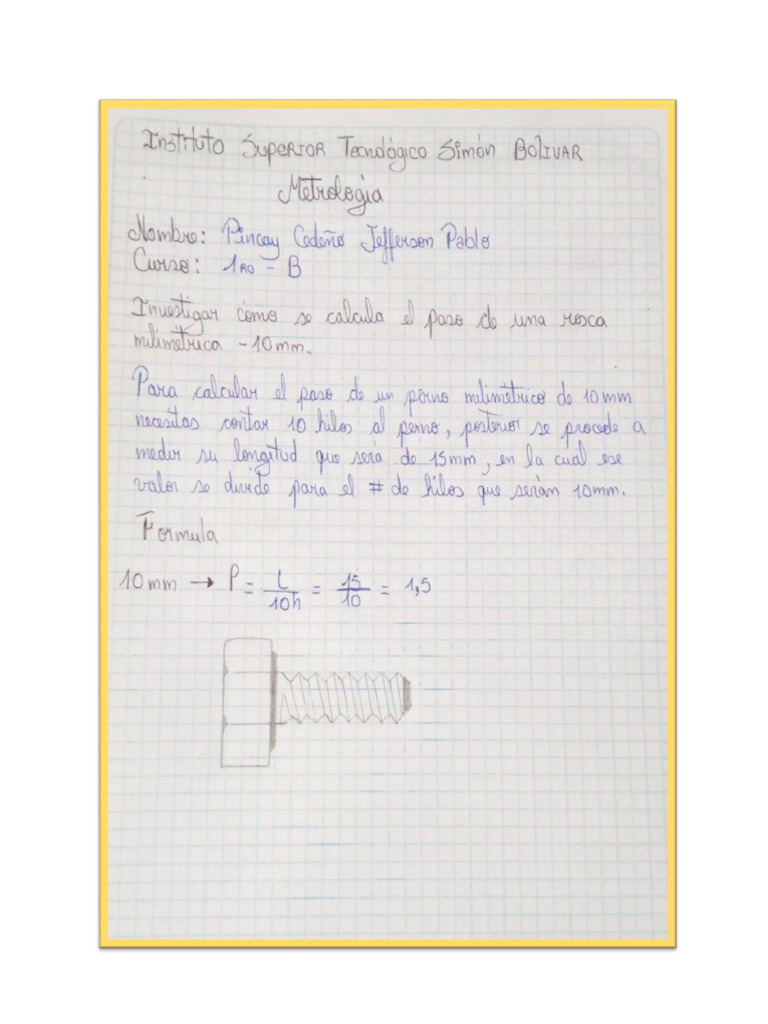 Instituto Superior Tecnológico Simón Bolivar
Metrologia
Nombre: Pincay Cedeño Jefferson Pablo
Curso: 1RO - B
Investigar como se calcula el paso de una rosca
milimetrica - 10mm.
Para calcular el paso de un perno milimetrico de 10mm
necesitas contar 10 hilos al perno, posterior se procede a
medir su longitud que sera de 15mm, en la cual ese
valor se divide para el # de hilos que serán 10mm.
Formula
10mm → P = L/10h = 15/10 = 1,5